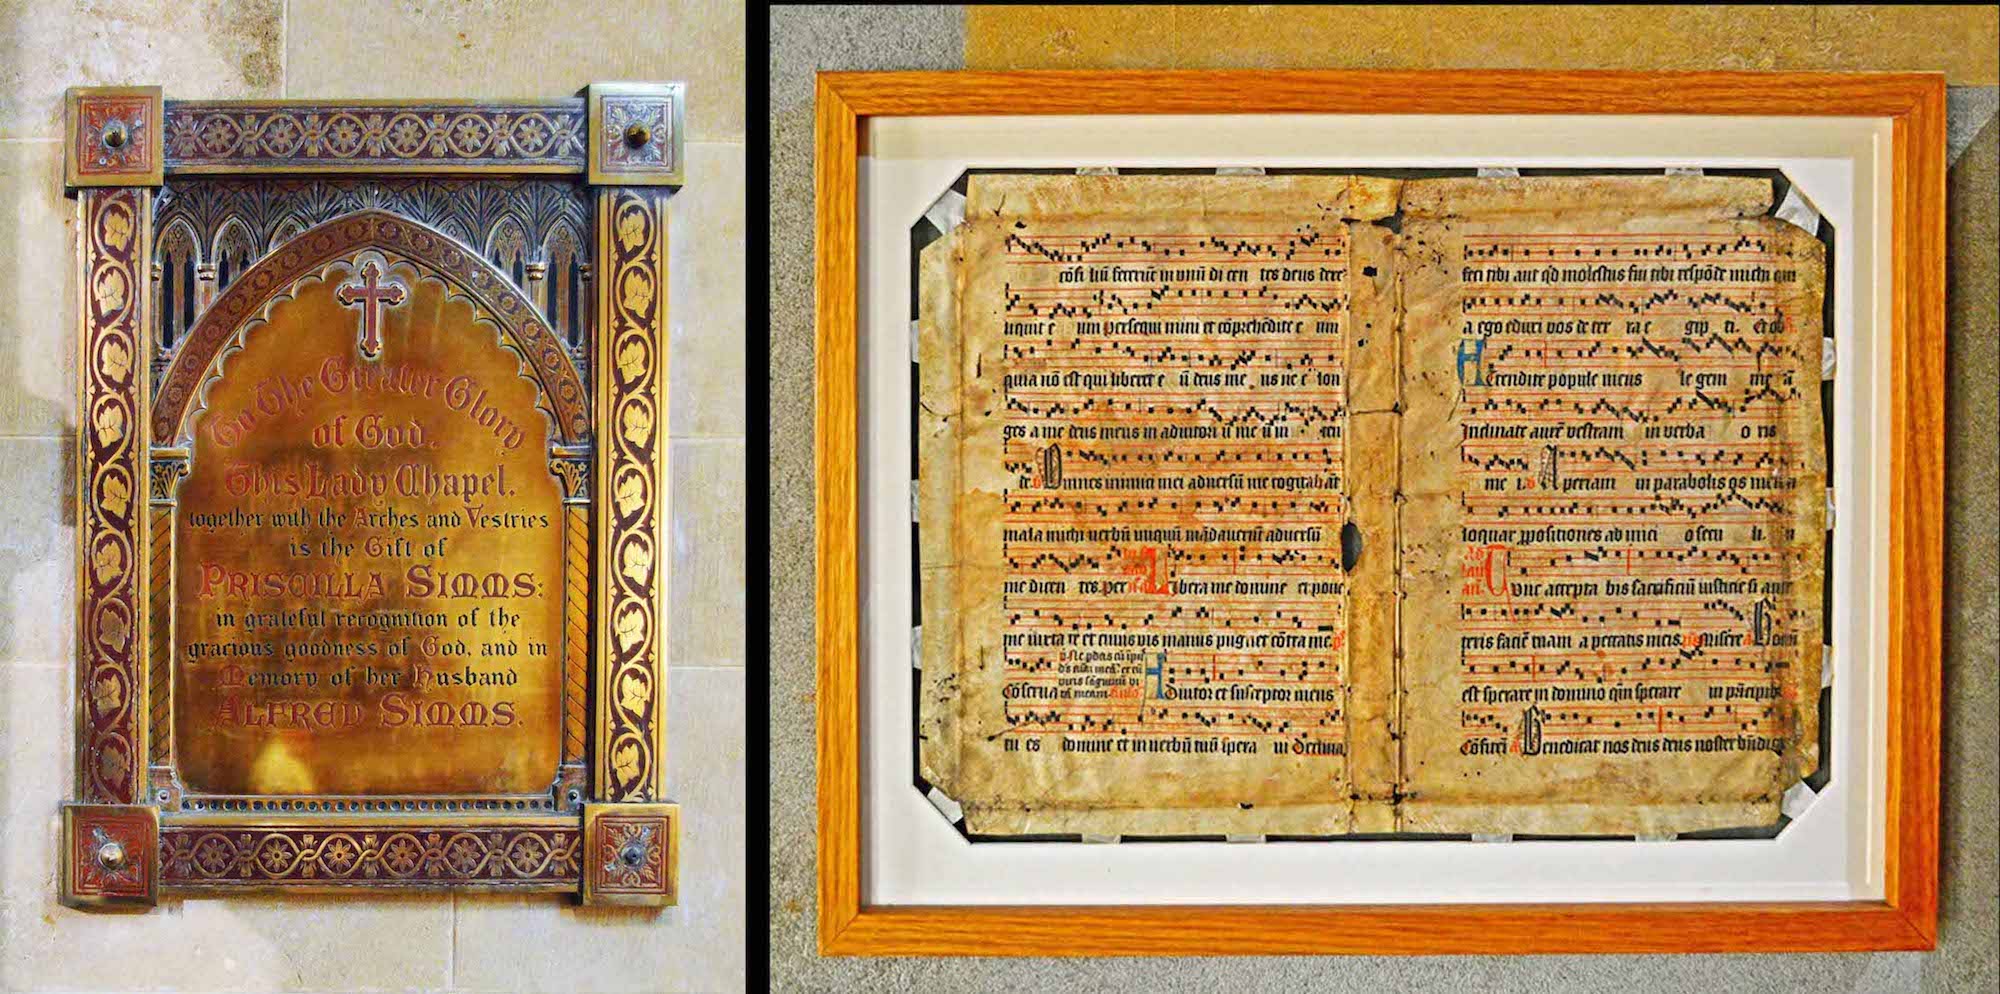 To The Greater Glory
of God.
This Lady Chapel.
together with the Arches and Vestries
is the Gift of
PRISCILLA SIMMS:
in grateful recognition of the
gracious goodness of God, and in
Memory of her Husband
ALFRED SIMMS.
cōsiliū fecerūt in unū dicentes deus dere
liquit eum persequimini et cōprehēdite eum
quia nō est qui liberet eū deus meus ne elon
ges a me deus meus in adiutoriū meū inten
de. Omnes inimici mei adversū me cogitabāt
mala michi verbū iniquū mādaverūt adversū
me dicentes Libera me domine et pone
me iuxta te et cuiusvis manus pugnet cōtra me.
Cōserva Adiutor et susceptor meus
tu es domine et in verbū tuū speravi Declina
feci tibi aut qd molestus fui tibi respōde michi quia
ego eduxi vos de terra egipti.
Attendite popule meus legem meā
Inclinate aurē vestram in verba oris
mei. Aperiam in parabolis os meum
loquar ppositiones ab inicio seculi
Tunc acceptabis sacrificiū iusticie si aver
teris faciē tuam a peccatis meis Misere Bonum
est sperare in domino qm sperare in principibus
Cōfitei Benedicat nos deus deus noster